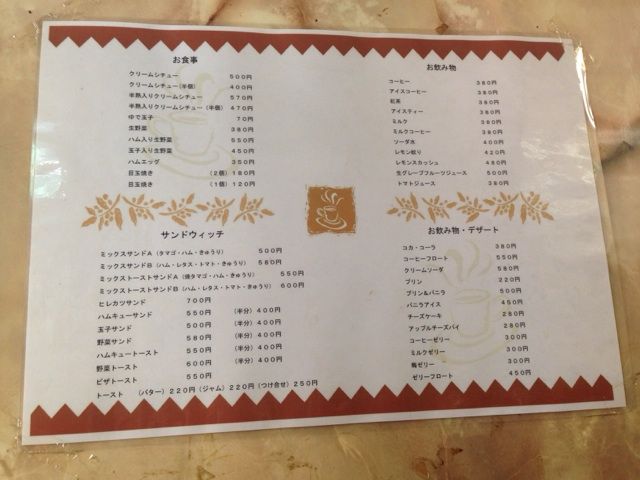 お食事
クリームシチュー 500円
クリームシチュー(半個) 400円
半熟入りクリームシチュー 570円
半熟入りクリームシチュー (半個) 470円
ゆで玉子 70円
生野菜 380円
ハム入り生野菜 550円
玉子入り生野菜 450円
ハムエッグ 350円
目玉焼き (2個) 180円
目玉焼き (1個) 120円
サンドウィッチ
ミックスサンドA (タマゴ・ハム・きゅうり) 500円
ミックスサンドB (ハム・レタス・トマト・きゅうり) 580円
ミックストーストサンドA (焼タマゴ・ハム・きゅうり) 550円
ミックストーストサンドB (ハム・レタス・トマト・きゅうり) 600円
ヒレカツサンド 700円
ハムキューサンド 550円 (半分) 400円
玉子サンド 500円 (半分) 400円
野菜サンド 580円 (半分) 400円
ハムキュートースト 550円 (半分) 400円
野菜トースト 600円 (半分) 400円
ピザトースト 550円
トースト (バター) 220円 (ジャム) 220円 (つけ合せ) 250円
お飲み物
コーヒー 380円
アイスコーヒー 380円
紅茶 380円
アイスティー 380円
ミルク 380円
ミルクコーヒー 380円
ソーダ水 400円
レモン絞り 420円
レモンスカッシュ 480円
生グレープフルーツジュース 500円
トマトジュース 380円
お飲み物・デザート
コカ・コーラ 380円
コーヒーフロート 550円
クリームソーダ 580円
プリン 220円
プリン&バニラ 500円
バニラアイス 450円
チーズケーキ 280円
アップルチーズパイ 280円
コーヒーゼリー 300円
ミルクゼリー 300円
ゼリー 300円
ゼリーフロート 450円